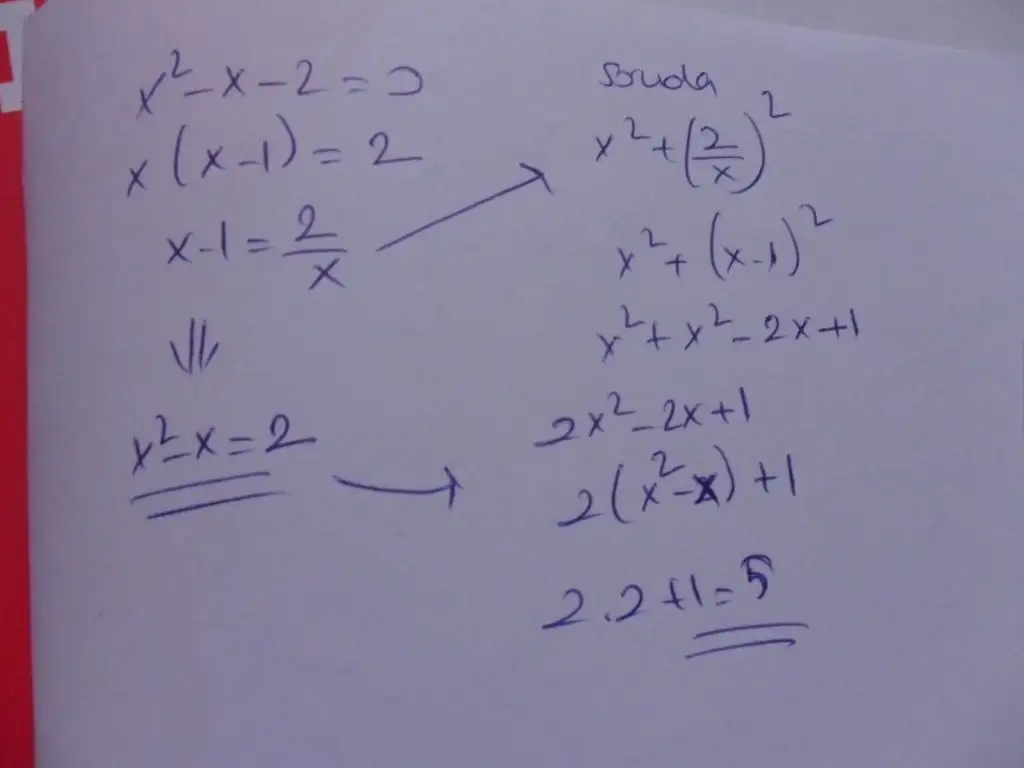 x² - x - 2 = 0
x(x-1) = 2
x-1 = 2/x
⇓
x² - x = 2
Soruda
x² + (2/x)²
x² + (x-1)²
x² + x² - 2x + 1
2x² - 2x + 1
2(x² - x) + 1
2.2 + 1 = 5